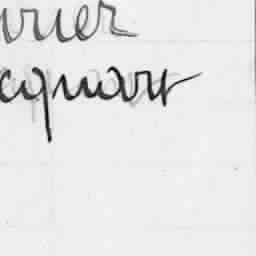 vrier
cquart